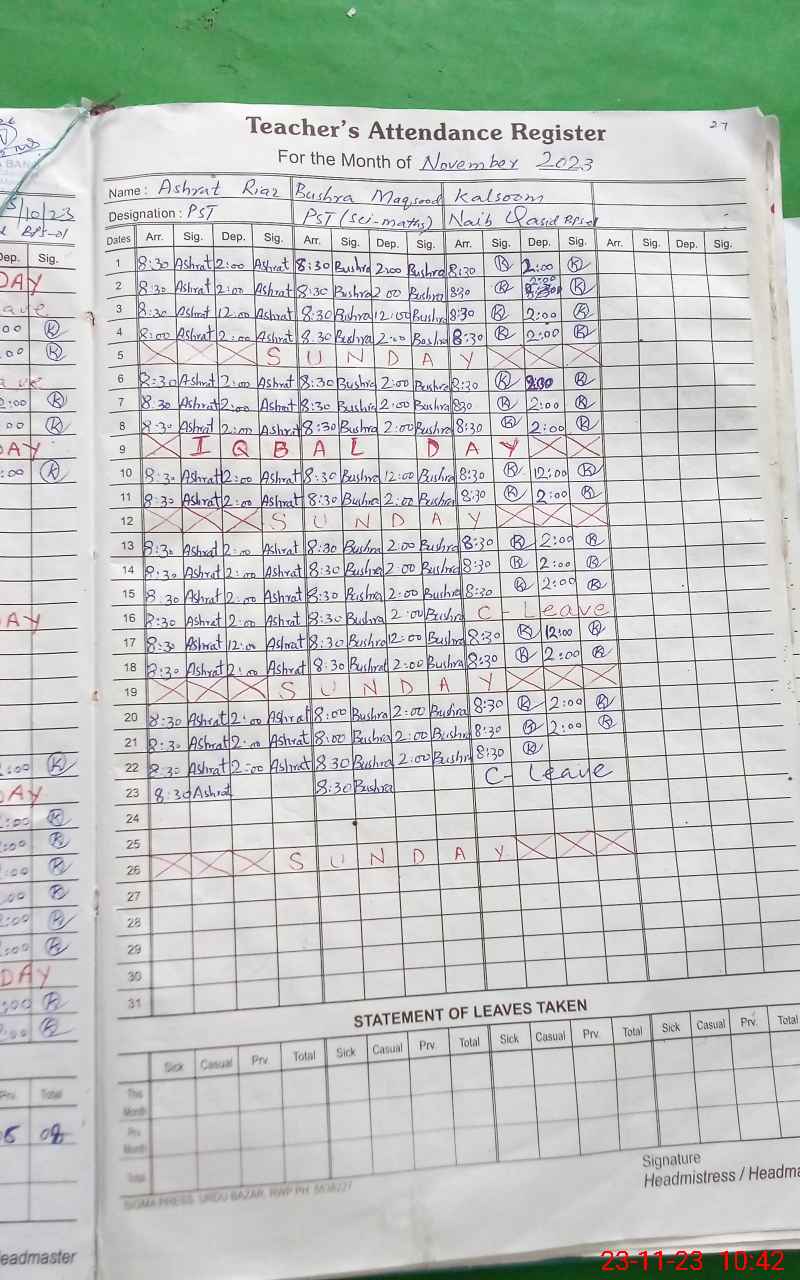 27
Teacher's Attendance Register
For the Month of November 2023
Name : Ashrat Riaz Bushra Maqsood Kalsoom
Designation : PST PST (sci-maths) Naib Qasid
Dates Arr. Sig. Dep. Sig. Arr. Sig. Dep. Sig. Arr. Sig. Dep. Sig. Arr. Sig. Dep. Sig.
1 8:30 Ashrat 2:00 Ashrat 8:30 Bushra 2:00 Bushra 8:30 K 2:00 K
2 8:30 Ashrat 2:00 Ashrat 8:30 Bushra 2:00 Bushra 8:30 K 2:00 K
3 8:30 Ashrat 12:00 Ashrat 8:30 Bushra 12:00 Bushra 8:30 K 2:00 K
4 8:00 Ashrat 2:00 Ashrat 8:30 Bushra 2:00 Bushra 8:30 K 2:00 K
5 SUNDAY
6 8:30 Ashrat 2:00 Ashrat 8:30 Bushra 2:00 Bushra 8:30 K K
7 8:30 Ashrat 2:00 Ashrat 8:30 Bushra 2:00 Bushra 8:30 K 2:00 K
8 8:30 Ashrat 2:00 Ashrat 8:30 Bushra 2:00 Bushra 8:30 K 2:00 K
9 IQBAL DAY
10 8:30 Ashrat 12:00 Ashrat 8:30 Bushra 12:00 Bushra 8:30 K 12:00 K
11 8:30 Ashrat 2:00 Ashrat 8:30 Bushra 2:00 Bushra 8:30 K 2:00 K
12 SUNDAY
13 8:30 Ashrat 2:00 Ashrat 8:30 Bushra 2:00 Bushra 8:30 K 2:00 K
14 8:30 Ashrat 2:00 Ashrat 8:30 Bushra 2:00 Bushra 8:30 K 2:00 K
15 8:30 Ashrat 2:00 Ashrat 8:30 Bushra 2:00 Bushra 8:30 K 2:00 K
16 8:30 Ashrat 2:00 Ashrat 8:30 Bushra 2:00 Bushra C-Leave
17 8:30 Ashrat 12:00 Ashrat 8:30 Bushra 12:00 Bushra 8:30 K 12:00 K
18 8:30 Ashrat 2:00 Ashrat 8:30 Bushra 2:00 Bushra 8:30 K 2:00 K
19 SUNDAY
20 8:30 Ashrat 2:00 Ashrat 8:00 Bushra 2:00 Bushra 8:30 K 2:00 K
21 8:30 Ashrat 2:00 Ashrat 8:00 Bushra 2:00 Bushra 8:30 K 2:00 K
22 8:30 Ashrat 2:00 Ashrat 8:30 Bushra 2:00 Bushra 8:30 K
23 8:30 Ashrat 8:30 Bushra C-Leave
24
25
26 SUNDAY
27
28
29
30
31
STATEMENT OF LEAVES TAKEN
Sick Casual Prv. Total Sick Casual Prv. Total Sick Casual Prv. Total Sick Casual Prv. Total
This Month
Prv. Month
Total
SIGMA PRESS URDU BAZAR, RWP PH:
Signature
Headmistress / Headma
eadmaster
23-11-23 10:42